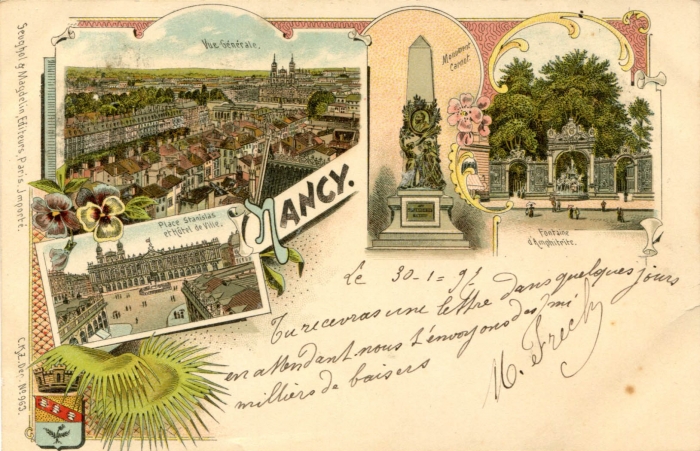 Vue Générale.
Monument
Carnot.
NANCY.
Place Stanislas
et Hôtel de Ville.
Fontaine
d'Amphitrite.
Le 30-1-9
Tu recevras une lettre dans quelques jours
en attendant nous t'envoyons des mi
milliers de baisers
M. Frech
Seughol & Magdelin, Editeurs, Paris. Importé.
C.K.Z. Dep. No. 963.